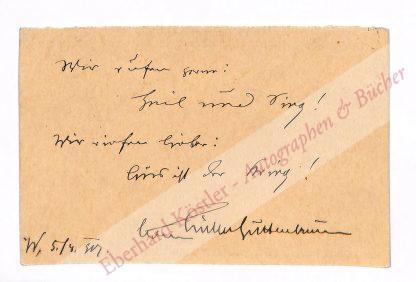 Wir rufen gerne:
Heil und Sieg!
Wir riefen lieber:
Aus ist der Krieg!
W, 5./
Müller-Guttenbrunn
Eberhard Köstler - Autographen & Bücher